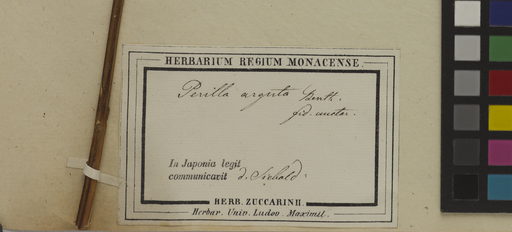 HERBARIUM REGIUM MONACENSE.
Perilla arguta Benth.
fid. auctor.
In Japonia legit
communicavit d. Siebold.
HERB. ZUCCARINII
Herbar. Univ. Ludov. Maximil.